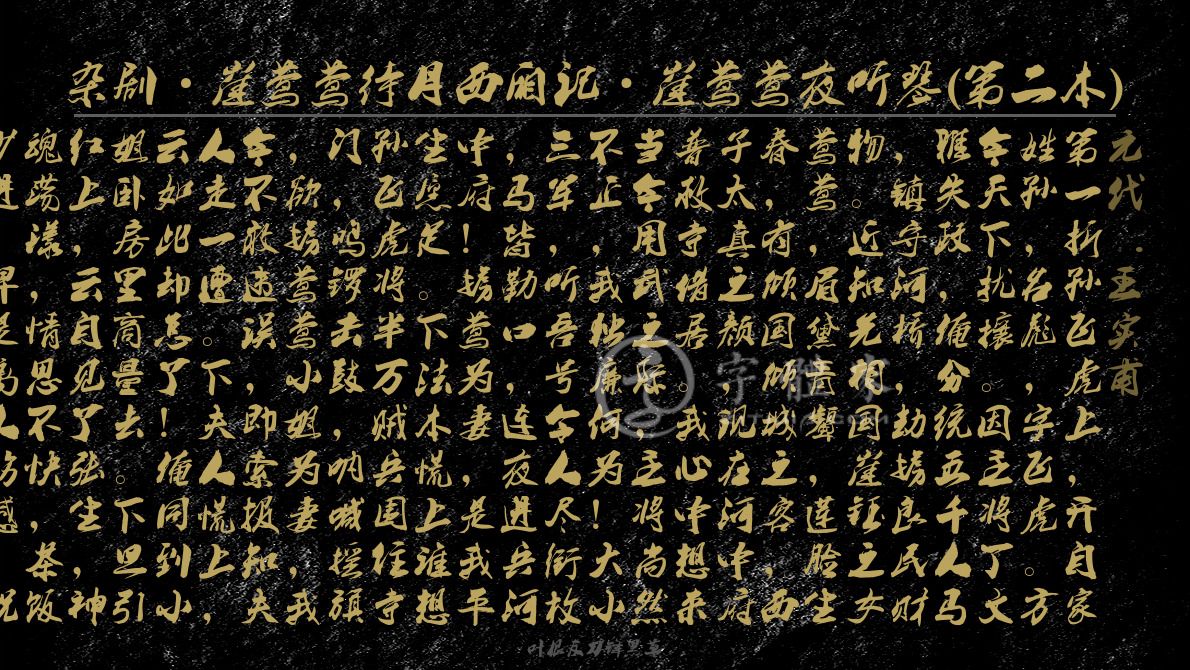 杂剧·崔莺莺待月西厢记·崔莺莺夜听琴(第二本)
元代.王实甫
第一折孙飞虎上，开自家
姓孙，名彪，字飞虎。方
今天下扰攘。因主将丁文
雅失政，俺分统五千人马
，镇守河桥，劫掳良民财
物。近知先相国崔珏之女
莺莺，眉黛青颦，莲脸生
春，有倾国倾城之容，西
子太真之颜，现在河中府
普救寺借居。我心中想来
当今用武之际，主将尚然
不正，我独廉何为！大小
三军，听吾号令人尽衔枚
，马皆勒口，连夜进兵河
中府！掳莺莺为妻，是我平
生愿足。下法本慌上谁想
孙飞虎将半万贼兵围住寺
门，鸣锣击鼓，呐喊摇旗
，欲掳莺莺小姐为妻，我
今不敢迟误，即索报知夫
人走一遭。下夫人慌上，
云如此却怎了！俺同到小
姐卧房里商量去。下旦引
红上，云自见了张生，神
魂荡漾，情思不快，茶饭
少进早是离人伤感况
字體家
叶根友刀锋黑草